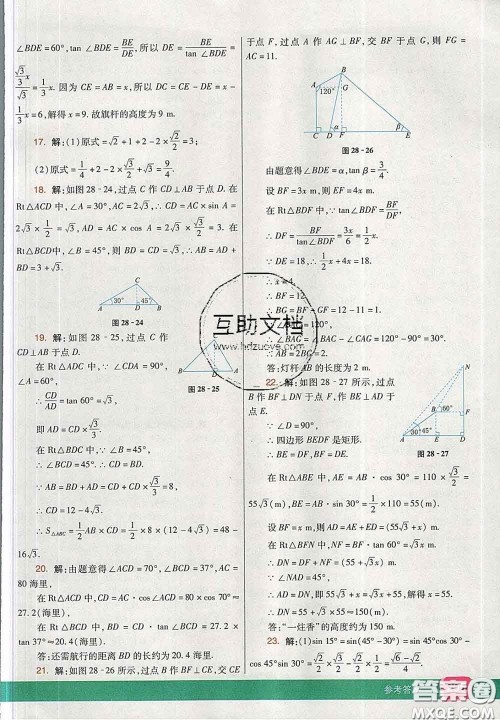 ∠BDE=60°,tan∠BDE=BE/DE,所以 DE=BE/tan∠BDE=
(√3/3 x)/√3=1/3 x. 因为 CE=AB=x,所以 DC=CE-DE=x-
1/3 x=6,解得 x=9. 故旗杆的高度为 9 m.
17. 解:(1)原式=√2+1+2-2×√2/2=3;
(2)原式=√3/2+4×3/4-√3/2-3/4=9/4.
18. 解:如图 28-24,过点 C 作 CD⊥AB 于点 D. 在
Rt△ACD 中,∠A=30°,AC=2√3,∴ CD=AC×sin A=
2√3×1/2=√3,AD=AC×cos A=2√3×√3/2=3. 在
Rt△BCD中,∠B=45°,则 BD=CD=√3,∴ AB=AD+
BD=3+√3.
C
30° 45°
A D B
图 28-24
19. 解:如图 28-25,过点 C 作
CD⊥AB 于点 D.
在 Rt△ADC 中,∵ ∠A=60°,
∴ CD/AD=tan 60°=√3,
即 AD=CD×√3/3.
在 Rt△BCD 中,∵ ∠B=45°,
∴ ∠BCD=45°,∴ CD=BD.
∵ AB=8,∴ CD+CD×√3/3=8,
∴ CD=12-4√3,
∴ S△ABC=1/2 AB×CD=1/2×8×(12-4√3)=48-
16√3.
A D B
图 28-25
20. 解:由题意得∠ACD=70°,∠BCD=37°,AC=
80 海里,
在 Rt△ACD 中,CD=AC·cos∠ACD=80×0.34=
27.2(海里),
在 Rt△BCD 中,BD=CD·tan∠BCD=27.2×
tan 37°≈20.4(海里).
答:还需航行的距离 BD 的长约为 20.4 海里.
21. 解:如图 28-26,过点 B 作 BF⊥CE,交 CE
于点 F,过点 A 作 AG⊥BF,交 BF 于点 G,则 FG=
AC=11.
B
A 120° G
α β
C D F E
图 28-26
由题意得∠BDE=α,tan β=3/4.
设 BF=3x m,则 EF=4x m.
在 Rt△BDF 中,∵ tan∠BDF=BF/DF,
∴ DF=BF/tan∠BDF=3x/6=1/2 x.
∵ DE=18,∴ 1/2 x+4x=18.
∴ x=4.
∴ BF=12.
∴ BG=BF-GF=12-11=1.
∵ ∠BAC=120°,
∴ ∠BAG=∠BAC-∠CAG=120°-90°=30°.
∴ AB=2BG=2.
答:灯杆 AB 的长度为 2 m.
22. 解:如图 28-27 所示,过点
B 作 BF⊥DN 于点 F,过点 B 作 BE⊥AD 于
点 E.
∵ ∠D=90°,
∴ 四边形 BEDF 是矩形.
∴ BE=DF,BF=DE.
N
B 60° F
30° 45°
A E D
图 28-27
在 Rt△ABE 中,AE=AB·cos 30°=110×√3/2=
55√3(m),BE=AB·sin 30°=1/2×110=55(m).
设 BF=x m,则 AD=AE+ED=(55√3+x)m.
在 Rt△BFN 中,NF=BF·tan 60°=√3x m.
∴ DN=DF+NF=(55+√3x)m.
∵ ∠NAD=45°,
∴ AD=DN,即 55√3+x=√3x+55,解得 x=55.
∴ DN=55+√3x≈150(m).
答:“一炷香”的高度约为 150 m.
23. 解:(1)sin 15°=sin(45°-30°)=sin 45°cos 30°-
cos 45°sin 30°=√2/2×√3/2-√2/2×1/2=(√6-√2)/4.
互助文档
www.hdzuoye.com
参考答
答案圈
MXQE.COM